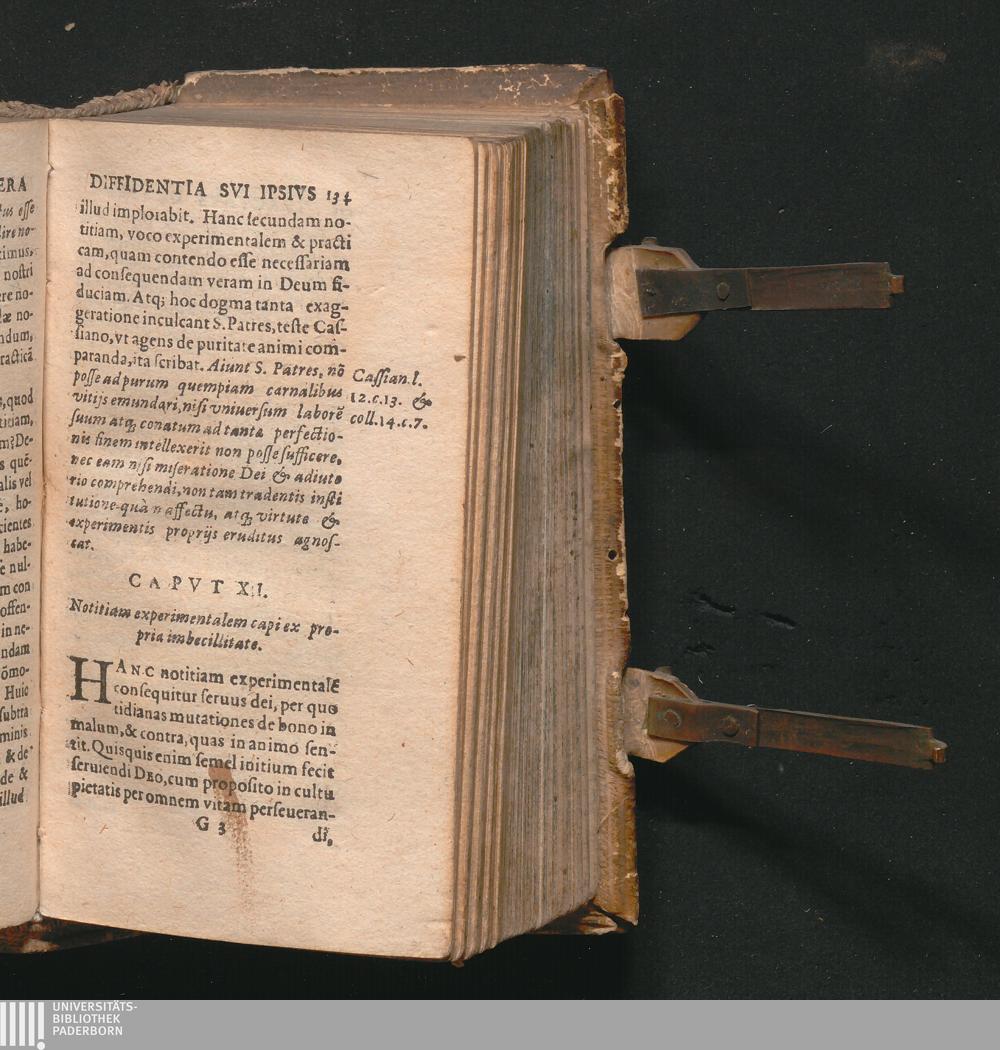 ERA
tus esse
lire no-
timus,
nostri
ere no-
læ no-
ndum,
racticā
s, quod
titiam,
m? De-
s quē-
alis vel
ē, ho-
cientes
habe-
e nul-
m con
offen-
in ne-
ndam
ōmo-
Huic
subtra
minis
& de
de &
illud
DIFFIDENTIA SVI IPSIVS 134
illud implorabit. Hanc secundam no-
titiam, voco experimentalem & practi
cam, quam contendo esse necessariam
ad consequendam veram in Deum fi-
duciam. Atq; hoc dogma tanta exag-
geratione inculcant S. Patres, teste Cas-
siano, vt agens de puritate animi com-
paranda, ita scribat. Aiunt S. Patres, nō
posse ad purum quempiam carnalibus
vitijs emundari, nisi vniuersum laborē
suum atq; conatum ad tanta perfectio-
nis finem intellexerit non posse sufficere,
nec eam nisi miseratione Dei & adiuto
rio comprehendi, non tam tradentis insti
tutione quàm affectu, atq; virtute &
experimentis proprijs eruditus agnos-
cat.
Cassian. l.
12. c. 13. &
coll. 14. c. 7.
CAPVT XI.
Notitiam experimentalem capi ex pro-
pria imbecillitate.
HANC notitiam experimentalē
consequitur seruus dei, per quo
tidianas mutationes de bono in
malum, & contra, quas in animo sen-
tit. Quisquis enim semel initium fecit
seruiendi DEO, cum proposito in cultu
pietatis per omnem vitam perseueran-
G 3 di,
UNIVERSITÄTS-
BIBLIOTHEK
PADERBORN